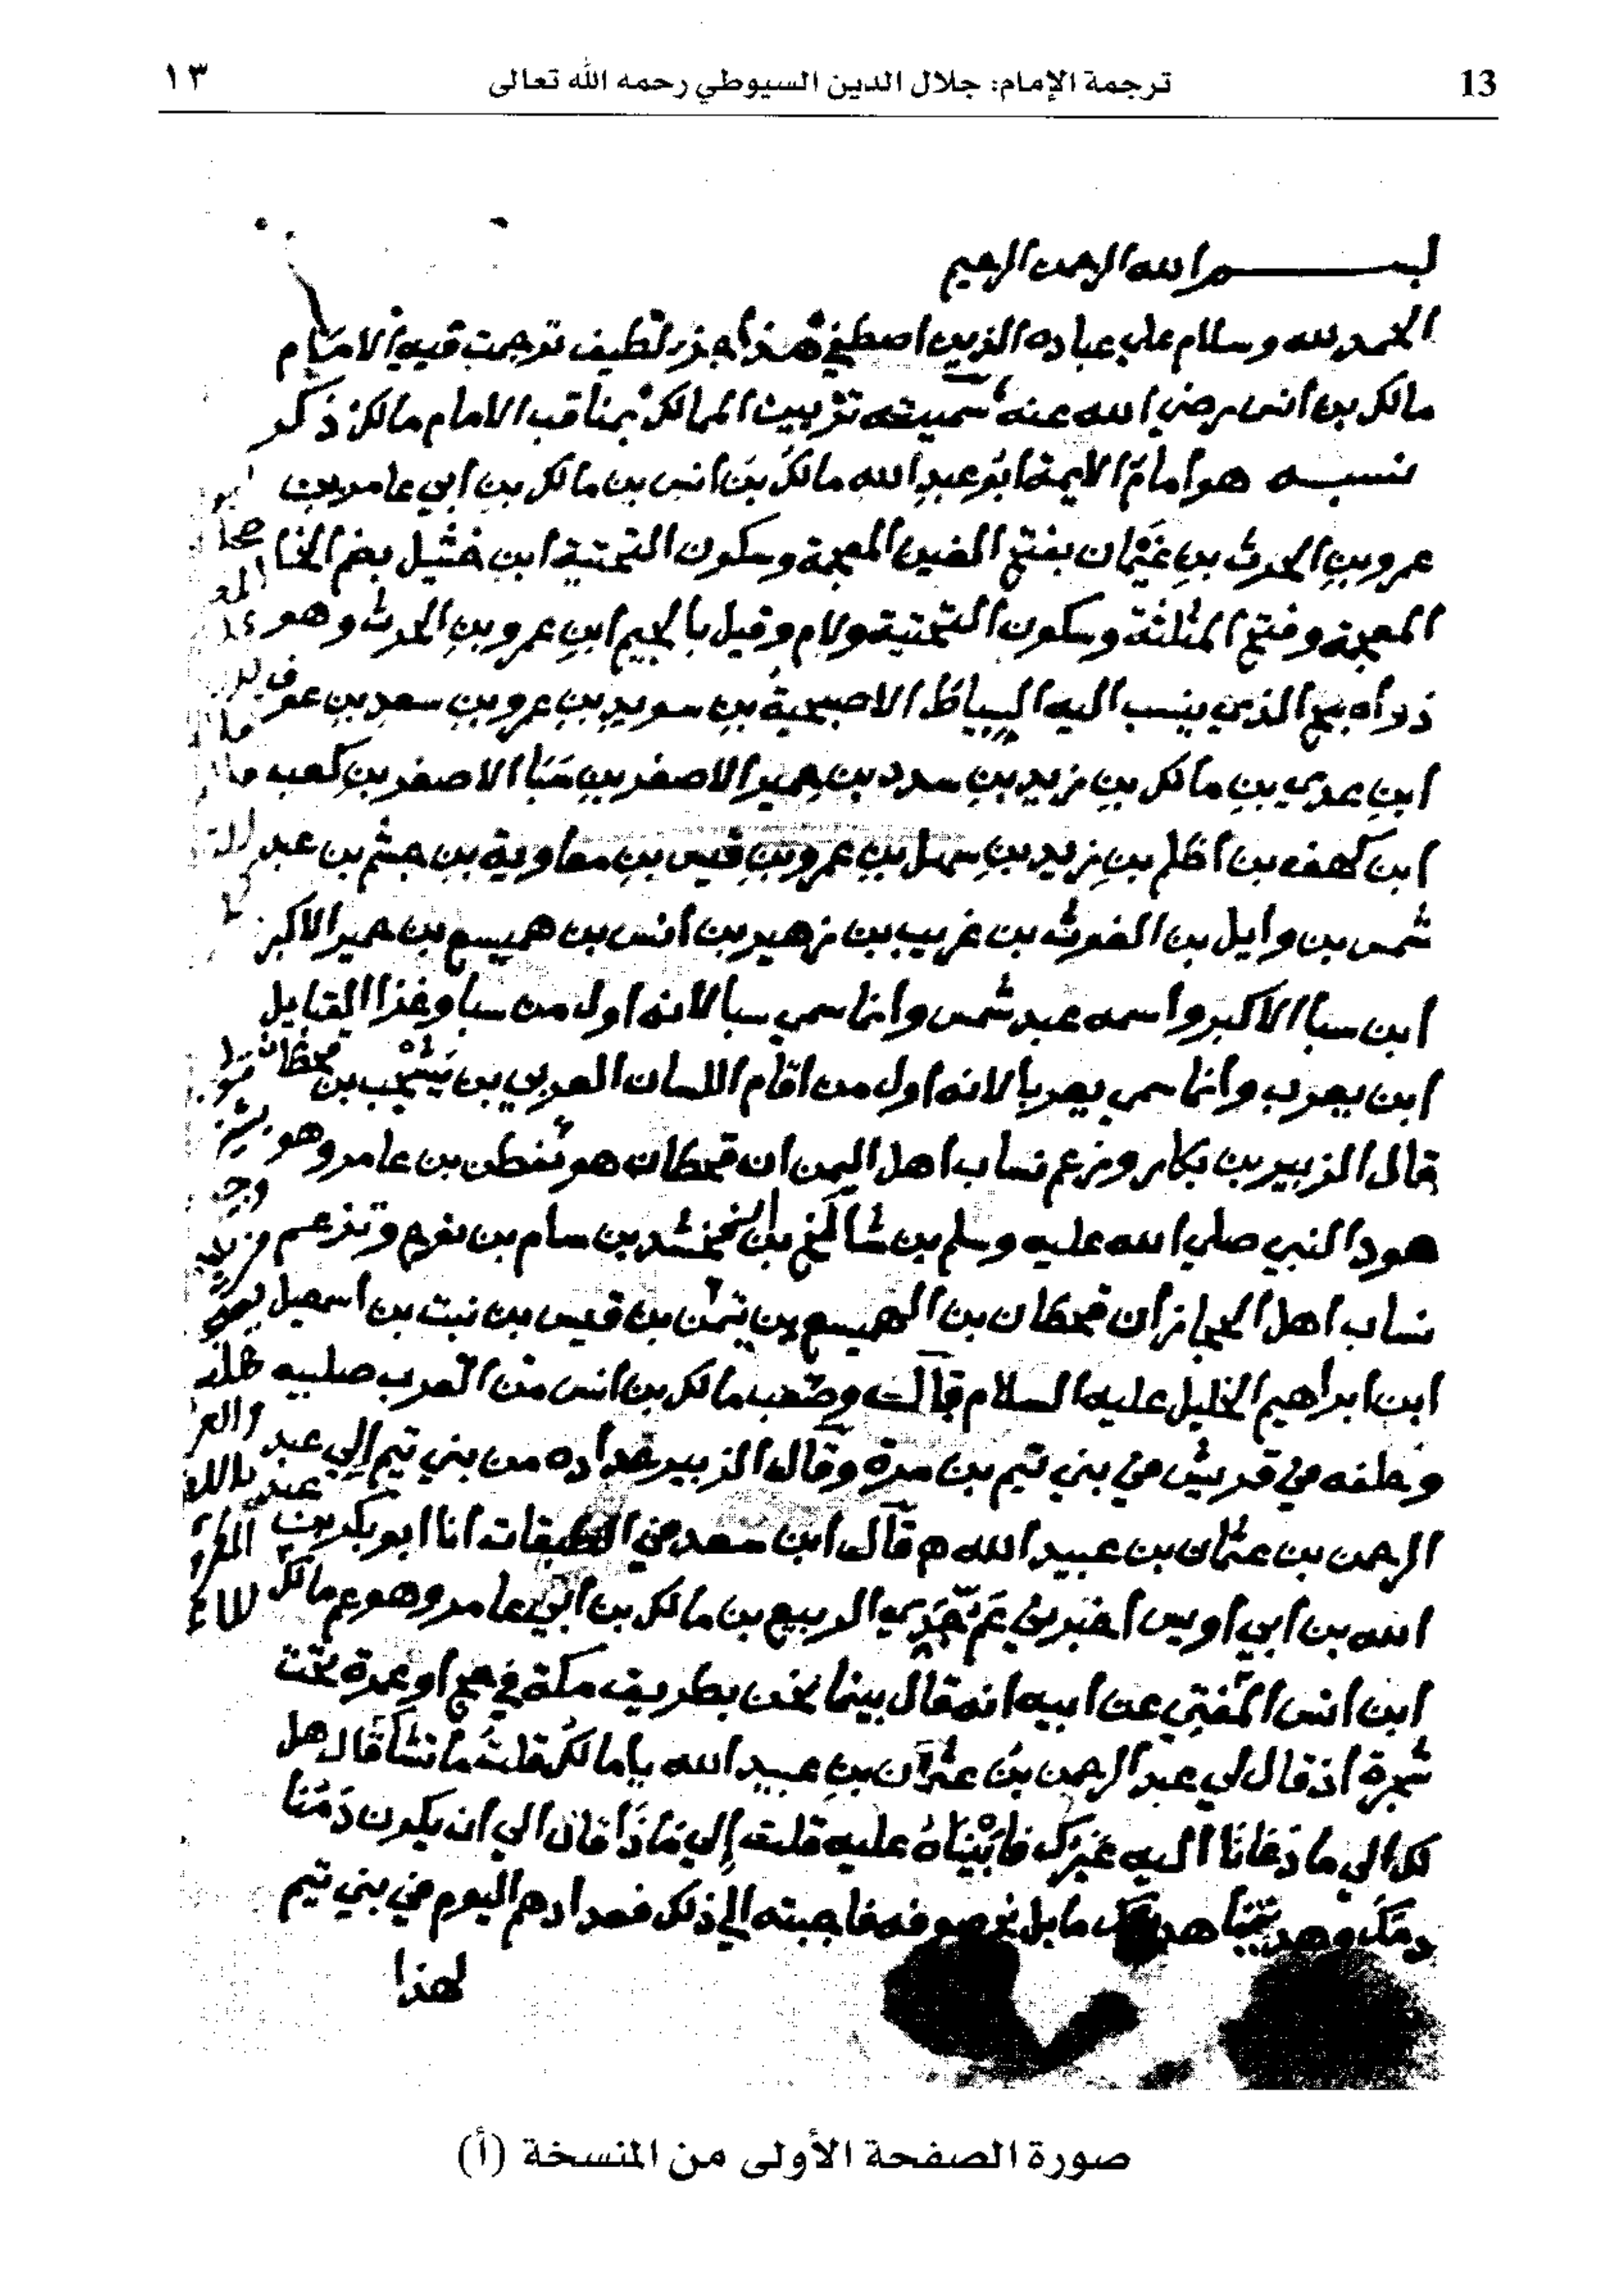 13 ترجمة الإمام: جلال الدين السيوطي رحمه الله تعالى ١٣
بسم الله الرحمن الرحيم
الحمد لله وسلام علي عباده الذين اصطفي هذا جزء لطيف ترجمت فيه الامام
مالك بن انس رضي الله عنه سميته تزيين الممالك بمناقب الامام مالك ذكر
نسبه هو امام الايمة ابو عبد الله مالك بن انس بن مالك بن ابي عامر بن
عمرو بن الحرث بن غيمان بفتح الغين المعجمة وسكون التحتية ابن خثيل بضم الخا
المعجمة وفتح المثلثة وسكون التحتية ولام وقيل بالجيم ابن عمرو بن الحرث وهو
ذو اصبح الذي ينسب اليه السياط الاصبحية بن سويد بن عمرو بن سعد بن عوف
ابن عدي بن مالك بن زيد بن سدد بن حمير الاصغر بن سبا الاصغر بن كعب
ابن كهف بن اظلم بن زيد بن سهل بن عمرو بن قيس بن معاوية بن جشم بن عبد
شمس بن وايل بن الغوث بن غريب بن زهير بن انس بن هميسع بن حمير الاكبر
ابن سبا الاكبر واسمه عبد شمس وانما سمي سبا لانه اول من سبا وغزا القبايل
ابن يعرب وانما سمي يعربا لانه اول من اقام اللسان العربي بن يشجب بن قحطان
قال الزبير بن بكار وزعم نساب اهل اليمن ان قحطان هو يقطن بن عامر وهو
هود النبي صلي الله عليه وسلم بن شالخ بن ارفخشد بن سام بن نوح وتزعم
نساب اهل الحجاز ان قحطان بن الهميسع بن تيمن بن قيس بن نبت بن اسمعيل
ابن ابراهيم الخليل عليه السلام قالت ومصعب مالك بن انس من العرب صلبيه
وحلفه في قريش في بني تيم بن مرة وقال الزبير عداده من بني تيم الي عبد
الرحمن بن عثمان بن عبيد الله م قال ابن سعد في الطبقات انا ابو بكر بن
الله بن ابي اويس اخبرني عم جدي الربيع بن مالك بن ابي عامر وهو عم مالك
ابن انس المفتي عن ابيه انه قال بينما نحن بطريق مكة في حج او عمرة تحت
شجرة اذ قال لي عبد الرحمن بن عثمان بن عبيد الله يا مالك قلت ما تشا قال هل
لك الي ما دعانا اليه غيرك فابيناه عليه قلت إلي ماذا قال الي ان يكون دمنا
دمك وهدمنا هدمك ما بل بحر صوفه فاجبته الي ذلك فعدادهم اليوم في بني تيم
لهذا
صورة الصفحة الأولى من النسخة (أ)